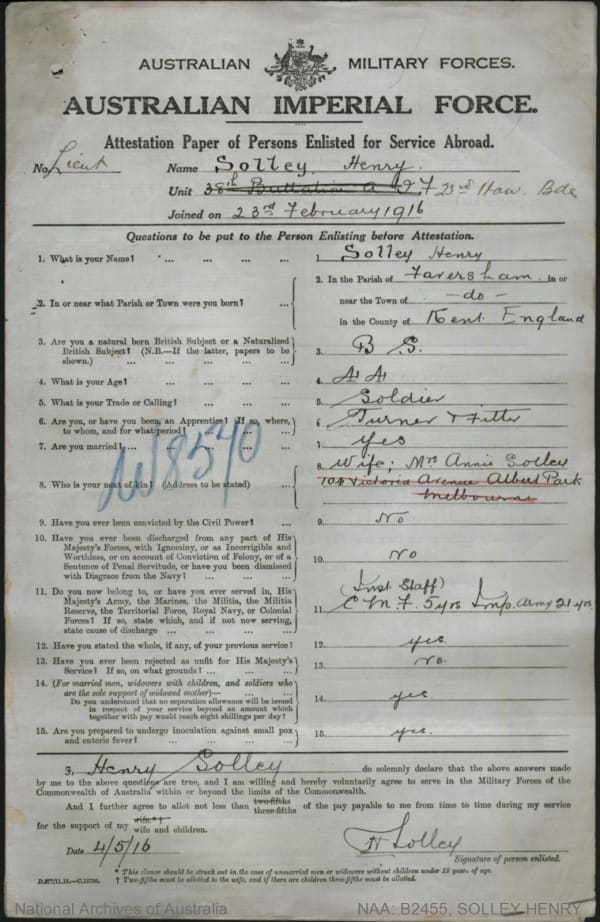 AUSTRALIAN MILITARY FORCES.
AUSTRALIAN IMPERIAL FORCE.
Attestation Paper of Persons Enlisted for Service Abroad.
No. Lieut Name Solley Henry.
Unit 38th Battalion A I F 23rd How. Bde
Joined on 23rd February 1916
Questions to be put to the Person Enlisting before Attestation.
1. What is your Name? ... ... ... ... 1. Solley Henry
2. In or near what Parish or Town were you born? ... 2. In the Parish of Faversham in or
near the Town of -do-
in the County of Kent England
3. Are you a natural born British Subject or a Naturalized
British Subject? (N.B.—If the latter, papers to be
shown.) ... ... ... ... 3. B S.
4. What is your Age? ... ... ... ... 4. 44
5. What is your Trade or Calling? ... ... ... 5. Soldier
6. Are you, or have you been, an Apprentice? If so, where,
to whom, and for what period? ... ... ... 6. Turner & Fitter
7. Are you married? ... ... ... ... 7. Yes
8. Who is your next of kin? (Address to be stated) ... 8. Wife; Mrs Annie Solley
104 Victoria Avenue Albert Park
Melbourne
W8570
9. Have you ever been convicted by the Civil Power? ... 9. No
10. Have you ever been discharged from any part of His
Majesty's Forces, with Ignominy, or as Incorrigible and
Worthless, or on account of Conviction of Felony, or of a
Sentence of Penal Servitude, or have you been dismissed
with Disgrace from the Navy? ... ... ... 10. No
11. Do you now belong to, or have you ever served in, His
Majesty's Army, the Marines, the Militia, the Militia
Reserve, the Territorial Force, Royal Navy, or Colonial
Forces? If so, state which, and if not now serving,
state cause of discharge ... ... ... ...
(Inst Staff)
11. C M F. 5 yrs Imp. Army 21 yrs
12. Have you stated the whole, if any, of your previous service? 12. yes
13. Have you ever been rejected as unfit for His Majesty's
Service? If so, on what grounds? ... ... ... 13. No.
14. (For married men, widowers with children, and soldiers who
are the sole support of widowed mother)— ... ...
Do you understand that no separation allowance will be issued
in respect of your service beyond an amount which
together with pay would reach eight shillings per day? 14. yes
15. Are you prepared to undergo inoculation against small pox
and enteric fever? ... ... ... ... 15. yes.
I, Henry Solley do solemnly declare that the above answers made
by me to the above questions are true, and I am willing and hereby voluntarily agree to serve in the Military Forces of the
Commonwealth of Australia within or beyond the limits of the Commonwealth.
And I further agree to allot not less than two-fifths three-fifths of the pay payable to me from time to time during my service
for the support of my wife*† wife and children.
Date 4/5/16 H Solley
Signature of person enlisted.
* This clause should be struck out in the case of unmarried men or widowers without children under 18 years of age.
† Two-fifths must be allotted to the wife, and if there are children three-fifths must be allotted.
National Archives of Australia NAA: B2455, SOLLEY HENRY